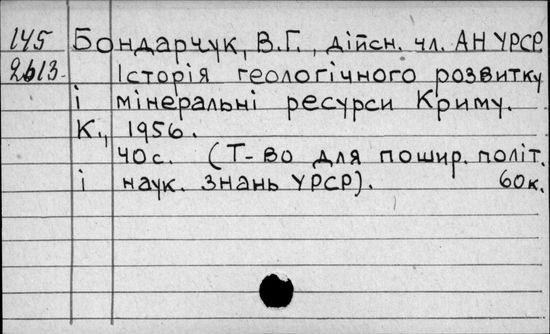 145 Бондарчук, В.Г., дійсн. чл. АН УРСР.
2613. Історія геологічного розвитку
і мінеральні ресурси Криму.
К., 1956.
40с. (Т-во для пошир. політ.
і наук. знань УРСР). 60к.